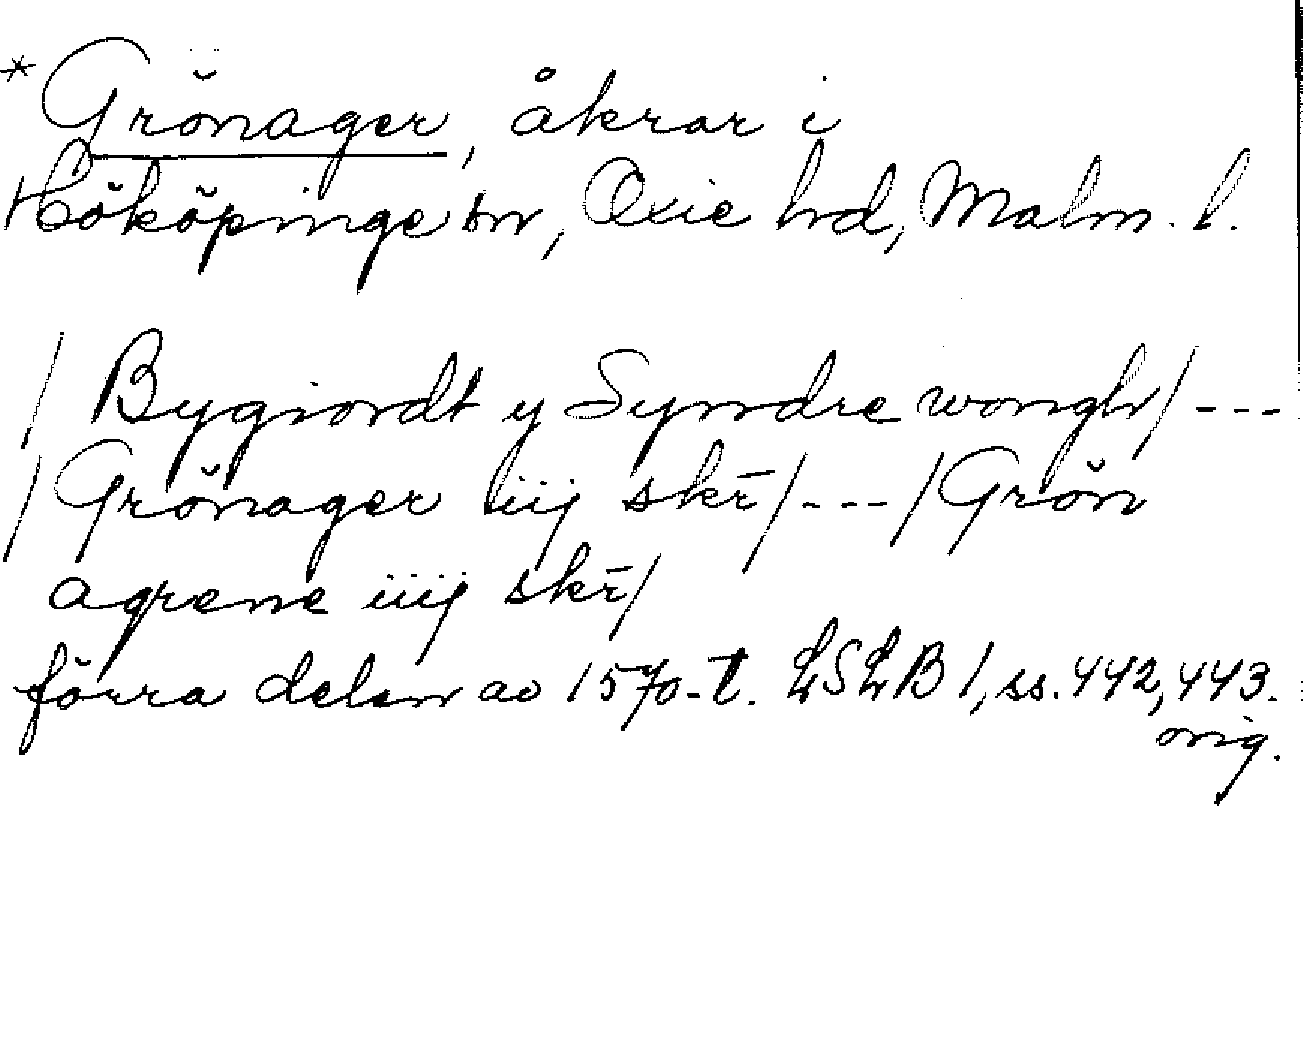 *Grönager, åkrar i
Hököpinge sn, Oxie hd, Malm. l.
/Bygiordt y Syndre wongh/---
/Grönager iiij skr̄/---/Grön
agrene iiij skr̄/
förra delen av 1570-t. LSLB 1, ss. 442, 443.
orig.